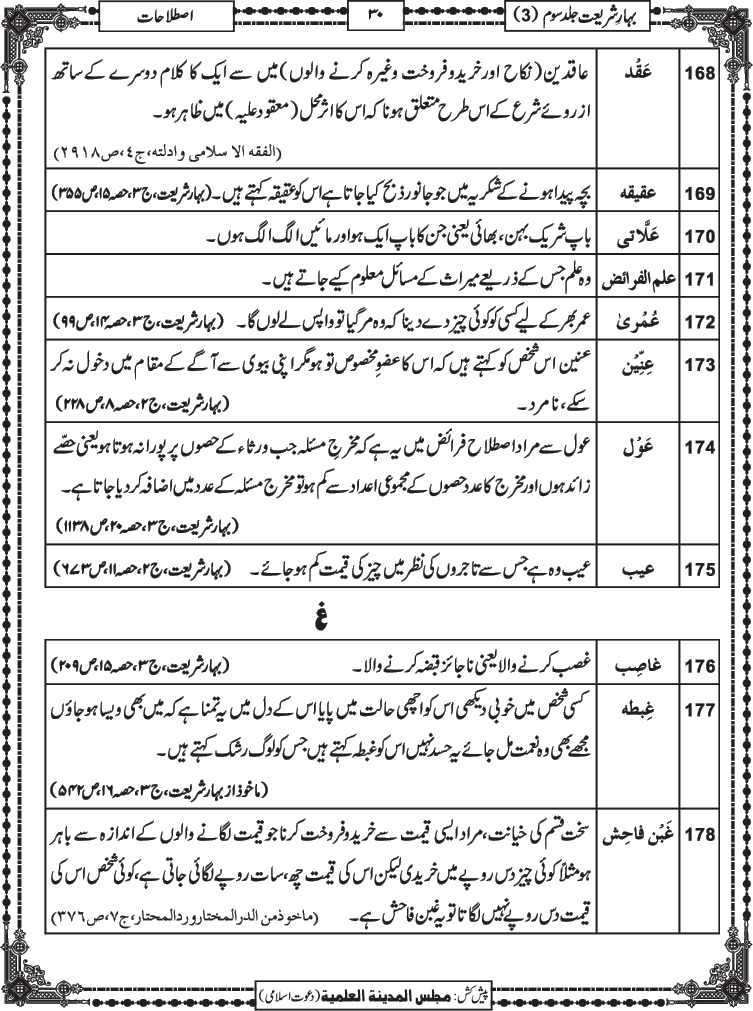 بہارِشریعت جلد سوم (3)
۳۰
اصطلاحات
168 عَقْد عاقدین (نکاح اور خرید و فروخت وغیرہ کرنے والوں) میں سے ایک کا کلام دوسرے کے ساتھ
ازروئے شرع کے اس طرح متعلق ہونا کہ اس کا اثر محل (معقود علیہ) میں ظاہر ہو۔
(الفقہ الا سلامی وادلتہ،ج٤،ص٢٩١٨)
169 عقیقه بچہ پیدا ہونے کے شکریہ میں جو جانور ذبح کیا جاتا ہے اس کو عقیقہ کہتے ہیں۔ (بہارشریعت،ج۳،حصہ۱۵،ص۳۵۵)
170 عَلَّاتی باپ شریک بہن، بھائی یعنی جن کا باپ ایک ہو اور مائیں الگ الگ ہوں۔
171 علم الفرائض وہ علم جس کے ذریعے میراث کے مسائل معلوم کیے جاتے ہیں۔
172 عُمْریٰ عمر بھر کے لیے کسی کو کوئی چیز دے دینا کہ وہ مر گیا تو واپس لے لوں گا۔ (بہارشریعت،ج۳،حصہ۱۴،ص۹۹)
173 عِنِّین عنین اس شخص کو کہتے ہیں کہ اس کا عضوِ مخصوص تو ہو مگر اپنی بیوی سے آگے کے مقام میں دخول نہ کر
سکے، نامرد۔ (بہارشریعت،ج۲،حصہ۸،ص۲۲۸)
174 عَوْل عول سے مراد اصطلاح فرائض میں یہ ہے کہ مخرجِ مسئلہ جب ورثاء کے حصوں پر پورا نہ ہوتا ہو یعنی حصّے
زائد ہوں اور مخرج کا عدد حصوں کے مجموعی اعداد سے کم ہو تو مخرج مسئلہ کے عدد میں اضافہ کر دیا جاتا ہے۔
(بہارشریعت،ج۳،حصہ۲۰،ص۱۱۳۸)
175 عیب عیب وہ ہے جس سے تاجروں کی نظر میں چیز کی قیمت کم ہو جائے۔ (بہارشریعت،ج۲،حصہ۱۱،ص۶۷۳)
غ
176 غاصِب غصب کرنے والا یعنی ناجائز قبضہ کرنے والا۔ (بہارشریعت،ج۳،حصہ۱۵،ص۲۰۹)
177 غِبطه کسی شخص میں خوبی دیکھی اس کو اچھی حالت میں پایا اس کے دل میں یہ تمنا ہے کہ میں بھی ویسا ہو جاؤں
مجھے بھی وہ نعمت مل جائے یہ حسد نہیں اس کو غبطہ کہتے ہیں جس کو لوگ رشک کہتے ہیں۔
(ماخوذ از بہارشریعت،ج۳،حصہ۱۶،ص۵۴۲)
178 غَبْن فاحِش سخت قسم کی خیانت، مراد ایسی قیمت سے خرید و فروخت کرنا جو قیمت لگانے والوں کے اندازہ سے باہر
ہو مثلاً کوئی چیز دس روپے میں خریدی لیکن اس کی قیمت چھ، سات روپے لگائی جاتی ہے، کوئی شخص اس کی
قیمت دس روپے نہیں لگاتا تو یہ غبن فاحش ہے۔ (ماخوذمن الدرالمختاروردالمحتار،ج٧،ص٣٧٦)
پیش کش: مجلس المدينة العلمية (دعوت اسلامی)